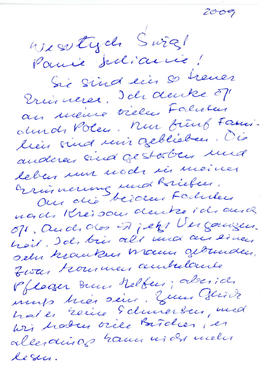 2009
Wesołych Świąt
Panie Julianie!
Sie sind ein so treuer
Erinnerer. Ich denke oft
an meine vielen Fahrten
durch Polen. Nur fünf Fami-
lien sind mir geblieben. Die
anderen sind gestorben und
leben nur noch in meiner
Erinnerung und Briefen.
An die beiden Fahrten
nach Kreisau denke ich auch
oft. Auch das ist jetzt Vergangen-
heit. Ich bin alt und an einen
sehr kranken Mann gebunden.
Zwar kommen ambulante
Pfleger zum Helfen, aber ich
muß hier sein. Zum Glück
hat er keine Schmerzen, und
wir haben viele Bücher, er
allerdings kann nicht mehr
lesen.